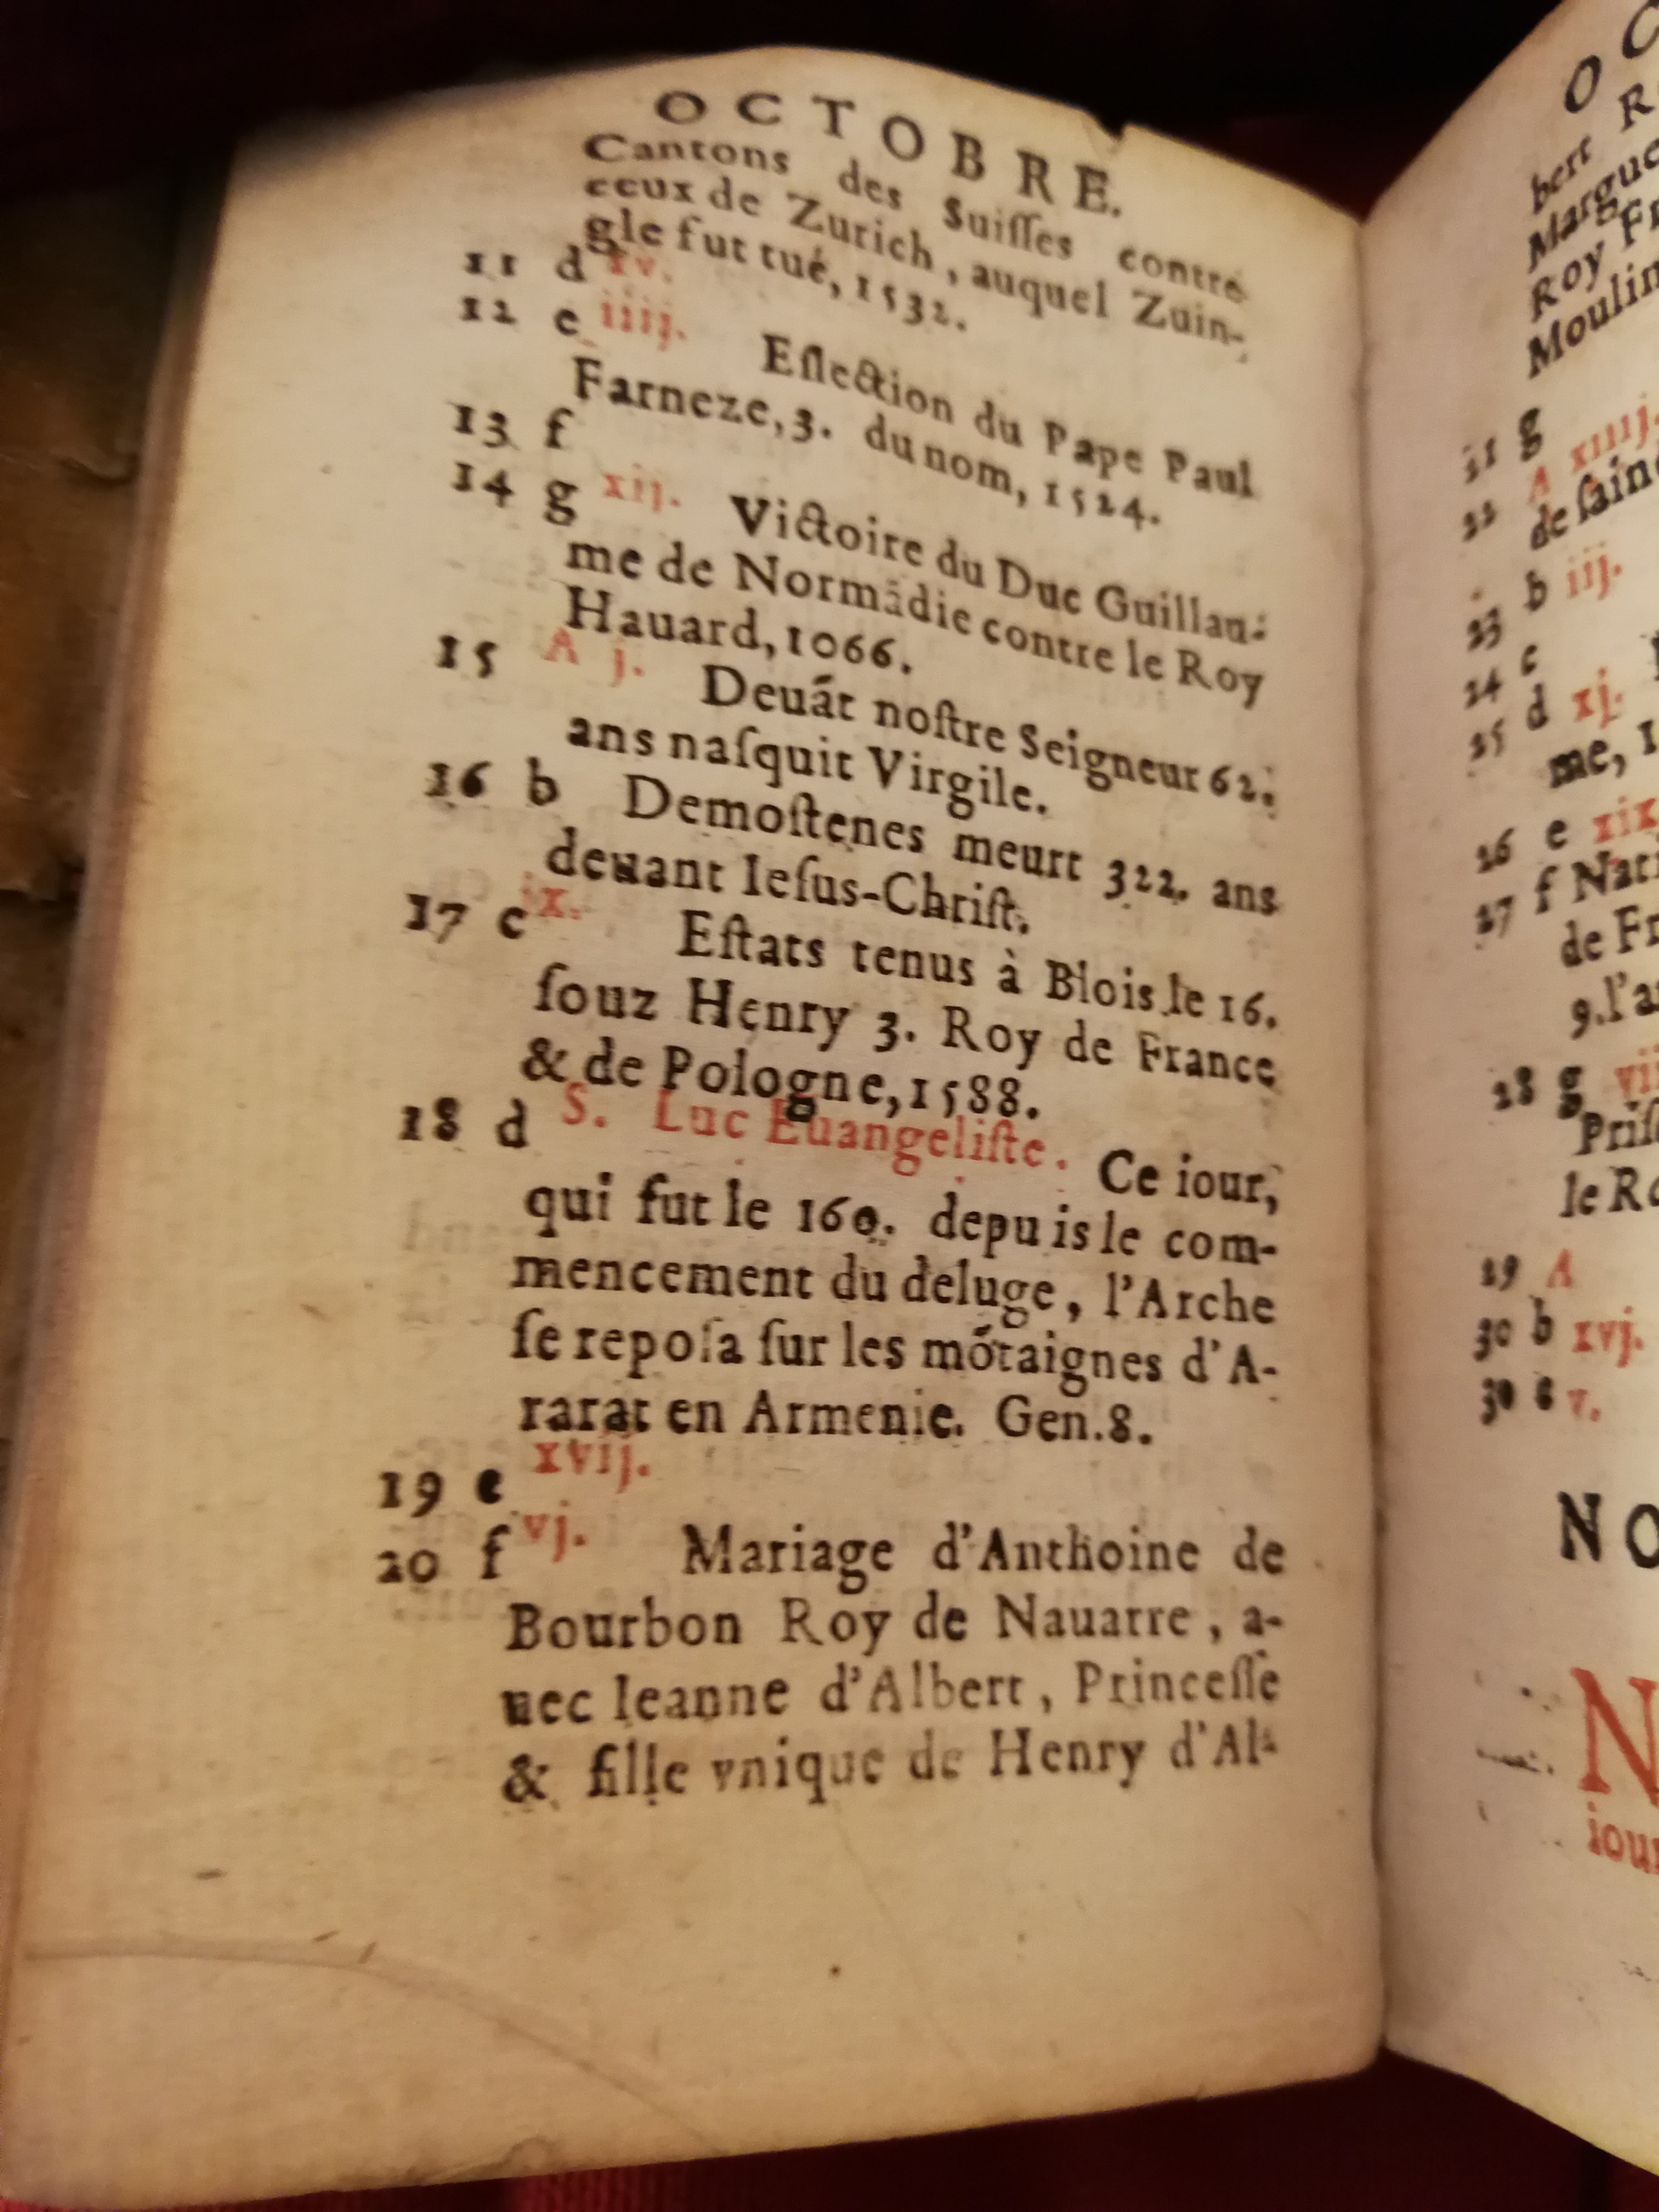 OCTOBRE.
Cantons des Suiſſes contre
ceux de Zurich, auquel Zuin-
gle fut tué, 1532.
11 d xv.
12 e iiij. Eſlection du Pape Paul
Farneze, 3. du nom, 1524.
13 f
14 g xij. Victoire du Duc Guillau-
me de Normãdie contre le Roy
Hauard, 1066.
15 A j. Deuãt noſtre Seigneur 62.
ans naſquit Virgile.
16 b Demoſtenes meurt 322. ans
deuant Ieſus-Chriſt.
17 c ix. Eſtats tenus à Blois le 16.
ſouz Henry 3. Roy de France
& de Pologne, 1588.
18 d S. Luc Euangeliſte. Ce iour,
qui fut le 160. depuis le com-
mencement du deluge, l'Arche
ſe repoſa ſur les mõtaignes d'A-
rarat en Armenie. Gen. 8.
19 e xvij.
20 f vj. Mariage d'Anthoine de
Bourbon Roy de Nauarre, a-
uec Ieanne d'Albert, Princeſſe
& fille vnique de Henry d'Al-
bert
Roy
Moulin
21 g
22 A xiiij.
23 b iij.
24 c
25 d xj.
me,
26 e xix
27 f
de
28 g
le
29 A
30 b xvj.
30 c v.